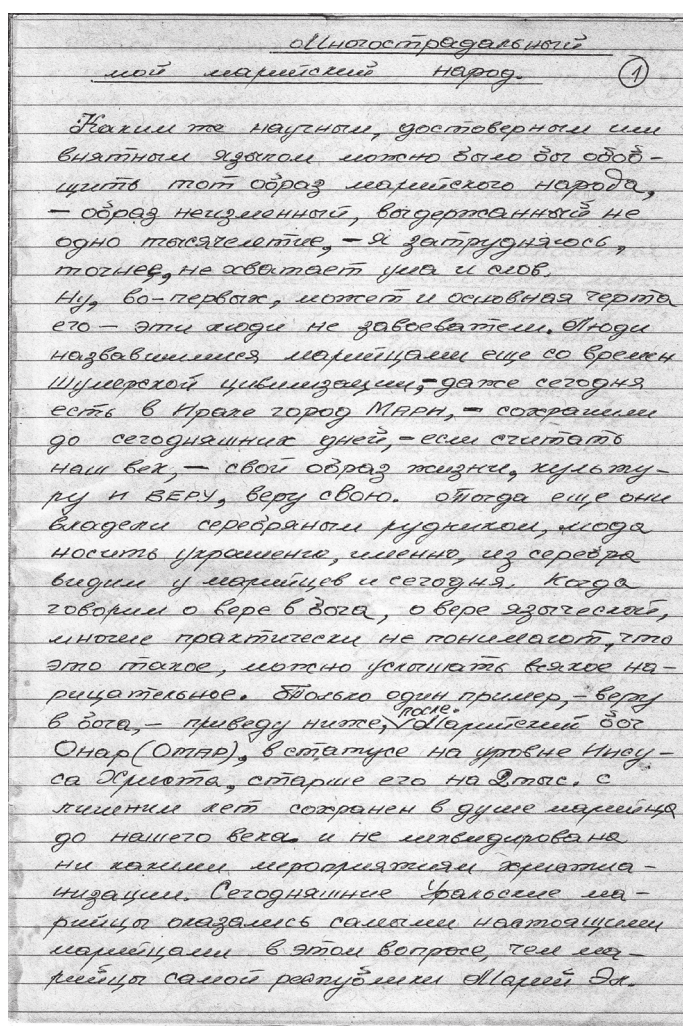 Многострадальный
мой марийский народ. 1
Каким же научным, достоверным или
внятным языком можно было бы обоб-
щить тот образ марийского народа,
– образ неизменный, выдержанный не
одно тысячелетие, – я затрудняюсь,
точнее, не хватает ума и слов.
Ну, во-первых, может и основная черта
его – эти люди не завоеватели. Люди
назвавшимися марийцами еще со времен
Шумерской цивилизации, – даже сегодня
есть в Ираке город МАРИ, – сохранили
до сегодняшних дней, – если считать
наш век, – свой образ жизни, культу-
ру И ВЕРУ, веру свою. Тогда еще они
владели серебряным рудником, мода
носить украшению, именно, из серебра
видим у марийцев и сегодня. Когда
говорим о вере в бога, о вере языческой,
многие практически не понимают, что
это такое, можно услышать всякое на-
рицательное. Только один пример, – веру
в бога, – приведу ниже, после. Марийский бог
Онар (ОТАР), в статусе на уровне Иису-
са Христа, старше его на 2 тыс. с
лишним лет сохранен в душе марийца
до нашего века. и не ликвидирована
ни какими мероприятиям христиа-
низации. Сегодняшние Уральские ма-
рийцы оказались самыми настоящими
марийцами в этом вопросе, чем ма-
рийцы самой республики Марий Эл.